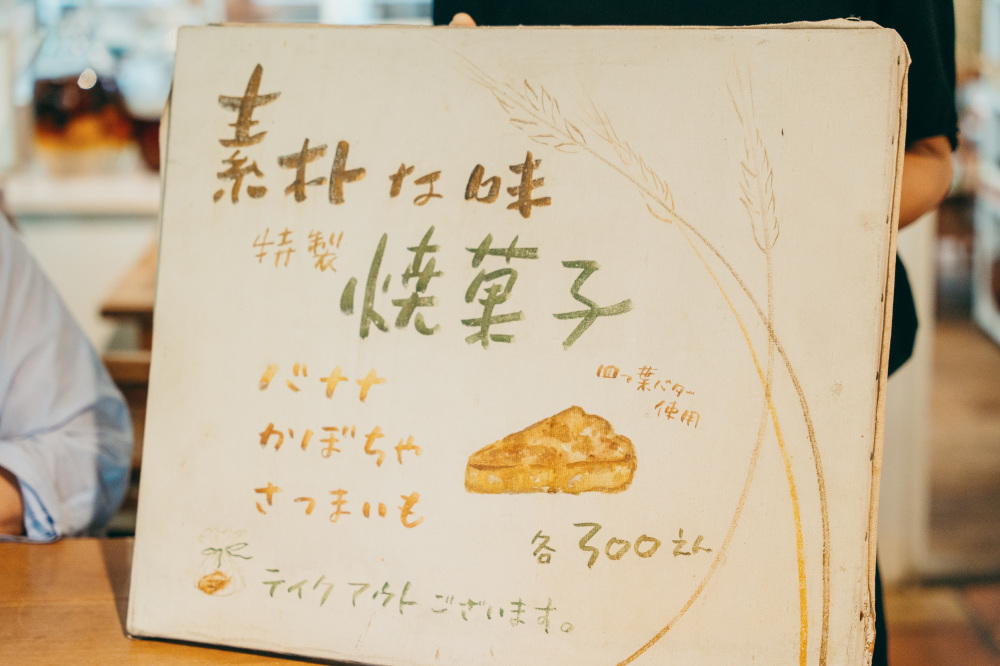 素朴な味
特製
焼菓子
バナナ
かぼちゃ
さつまいも
四つ葉バター
使用
各300えん
テイクアウトございます。